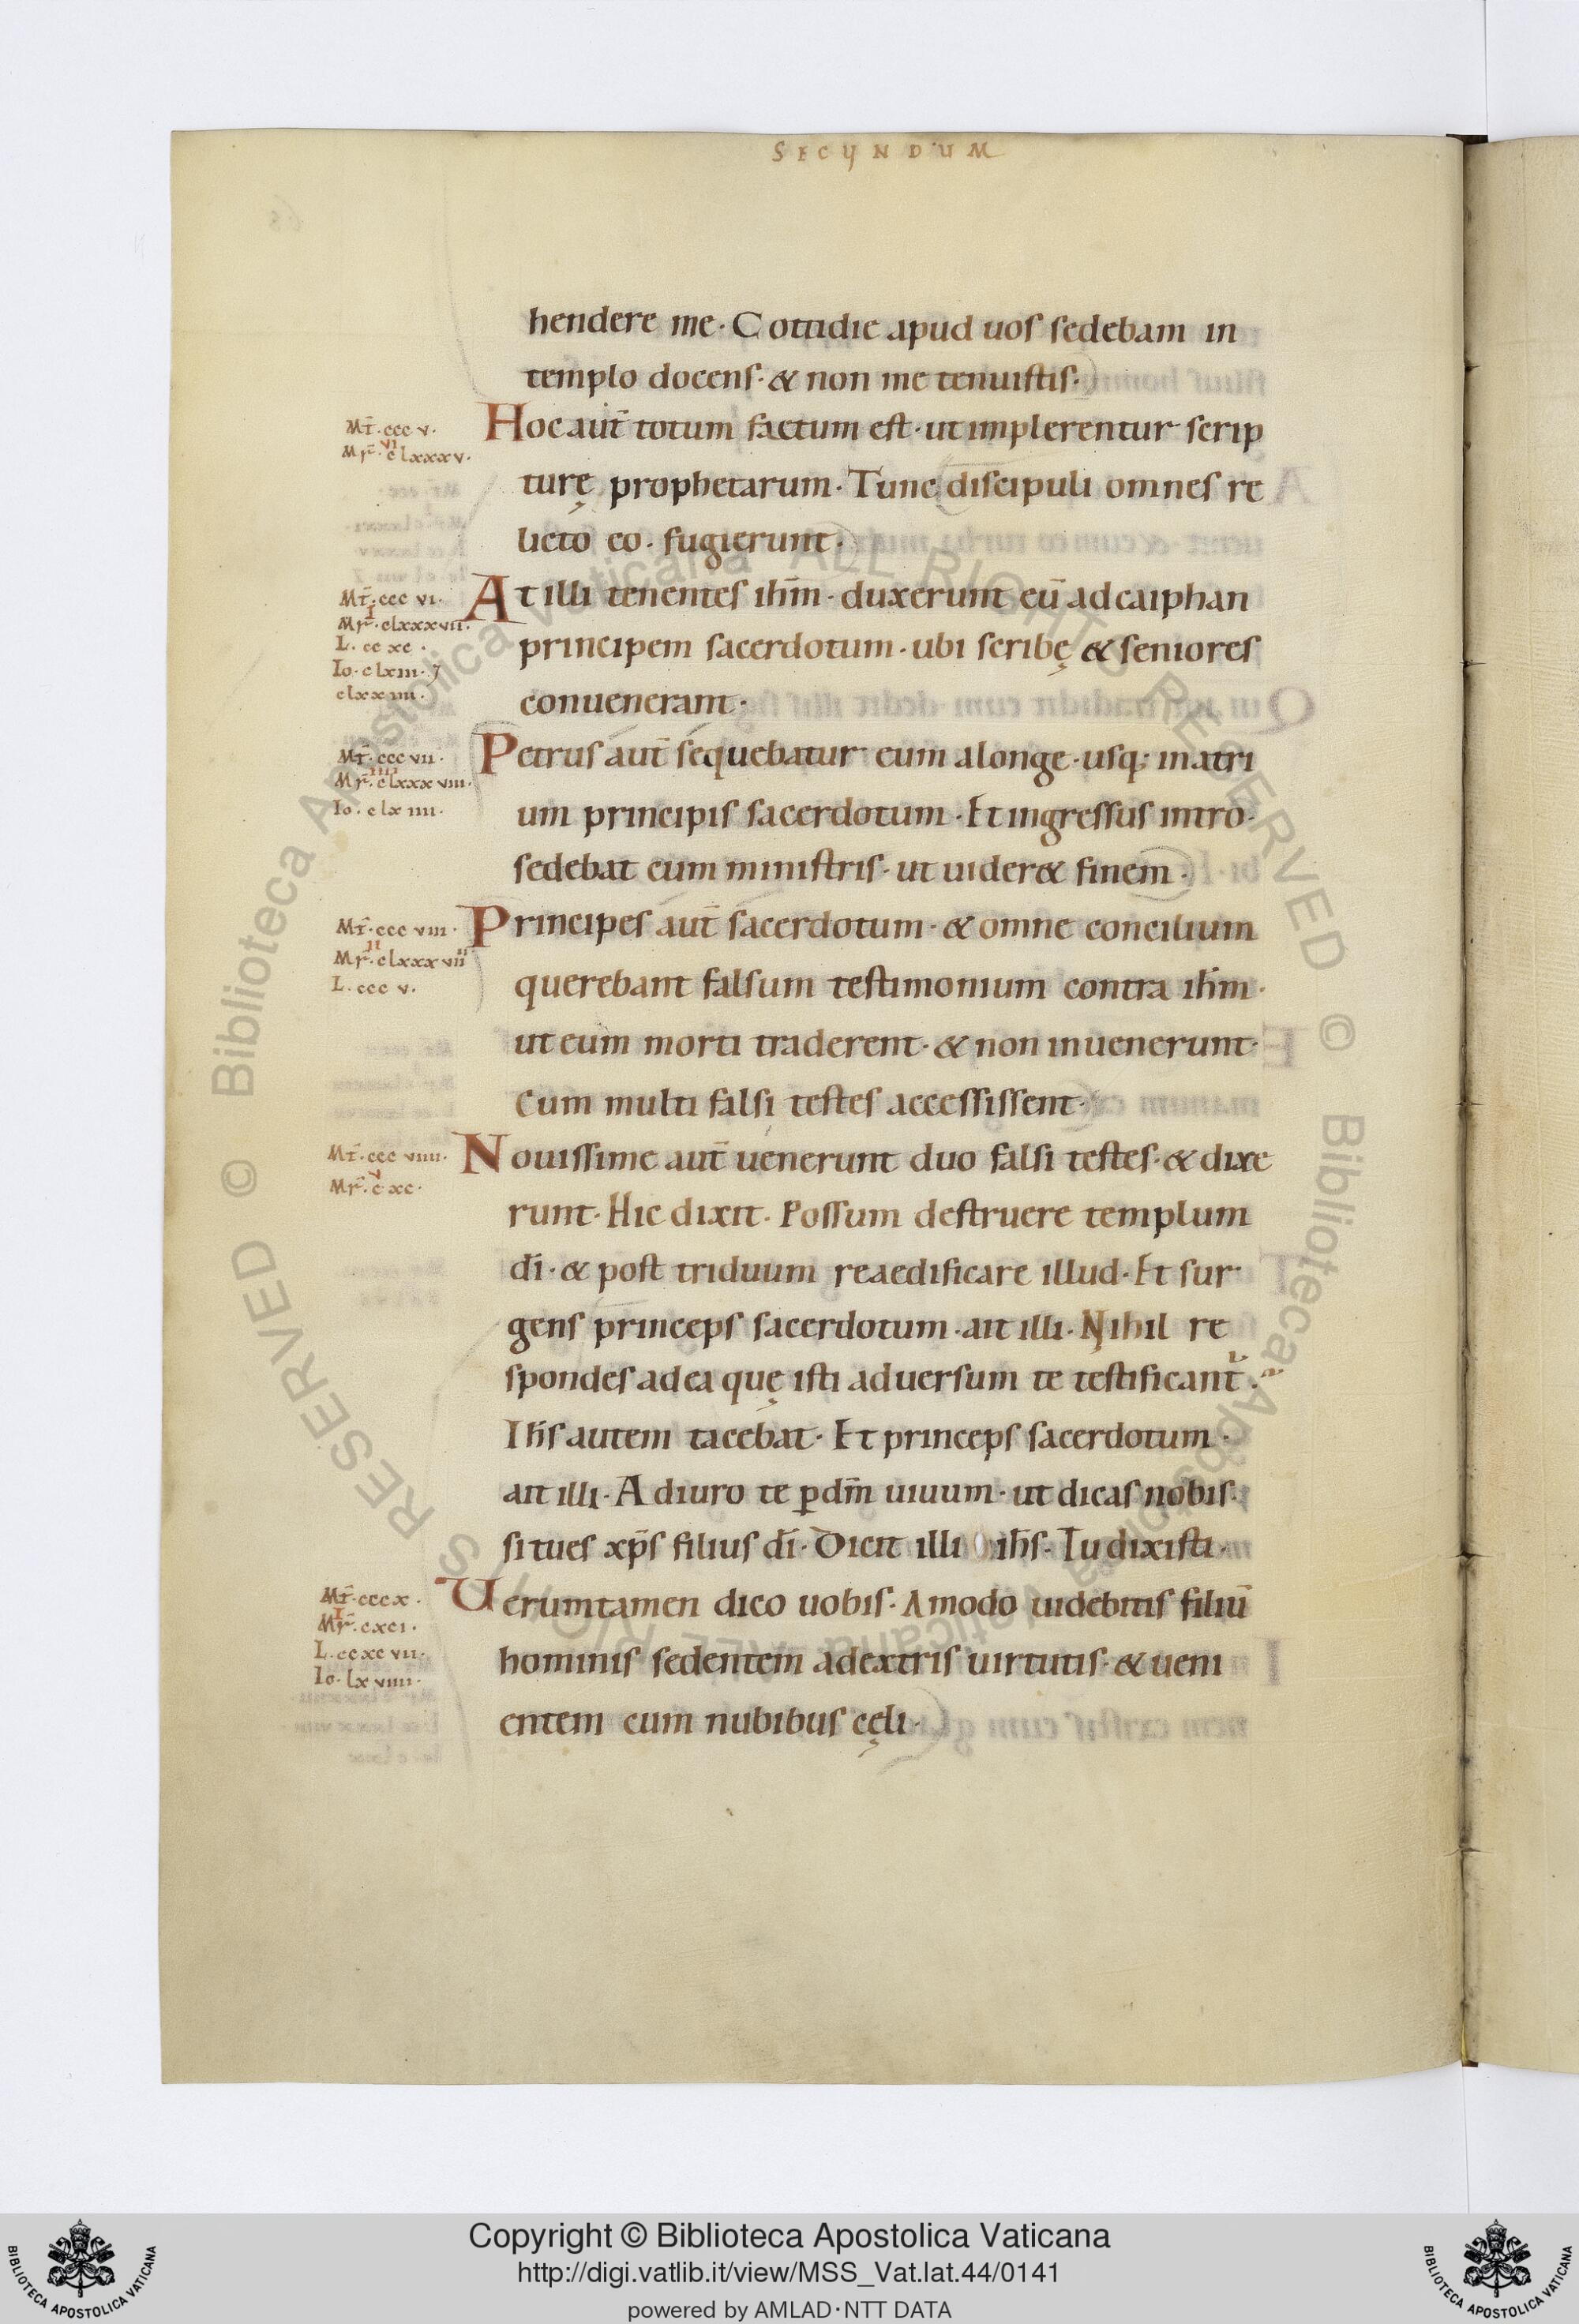 SECUNDUM
hendere me· Cottidie apud uos sedebam in
templo docens· & non me tenuistis·
Mt̄·ccc v·
Hoc aut̄ totum factum est· ut implerentur scrip
Mr̄·clxxxv·
vi
turę prophetarum· Tunc discipuli omnes re
licto eo· fugierunt·
Mt̄·ccc vi·
At illi tenentes ihm̄· duxerunt eū ad caiphan
i
Mr̄·clxxxvii·
L·cc xc·
principem sacerdotum· ubi scribę & seniores
Io·clxiii·7
clxxiiii·
conuenerant·
Mt̄·ccc vii·
Petrus aut̄ sequebatur eum alonge· usq; in atri
iiii
Mr̄·clxxxviii·
Io·clxiiii·
um principis sacerdotum· Et ingressus intro·
sedebat cum ministris· ut uider& finem·
Mt̄·ccc viii·
Principes aut̄ sacerdotum· & omne concilium
ii
Mr̄·clxxxviiii
L·ccc v·
querebant falsum testimonium contra ihm̄·
ut eum morti traderent· & non inuenerunt·
Cum multi falsi testes accessissent·
Mt̄·ccc viiii·
Nouissime aut̄ uenerunt duo falsi testes· & dixe
v
Mr̄·cxc·
runt· Hic dixit· Possum destruere templum
dī· & post triduum reaedificare illud· Et sur
gens princeps sacerdotum· ait illi· Nihil re
spondes ad ea quę isti aduersum te testificant᷑·
Ihs̄ autem tacebat· Et princeps sacerdotum·
ait illi· Adiuro te ꝑ dm̄ uiuum· ut dicas nobis·
si tu es xp̄s filius dī· Dicit illi ihs̄· Tu dixisti·
Mt̄·cccx·
Uerumtamen dico uobis· Amodo uidebitis filiū
i
Mr̄·cxci·
L·ccxcvii·
hominis sedentem adextris uirtutis· & ueni
Io·lxviiii·
entem cum nubibus cęli·
© Biblioteca Apostolica Vaticana ALL RIGHTS RESERVED © Biblioteca Apostolica Vaticana ALL RIGHTS RESERVED
Copyright © Biblioteca Apostolica Vaticana
http://digi.vatlib.it/view/MSS_Vat.lat.44/0141
powered by AMLAD·NTT DATA
BIBLIOTECA APOSTOLICA VATICANA
BIBLIOTECA APOSTOLICA VATICANA